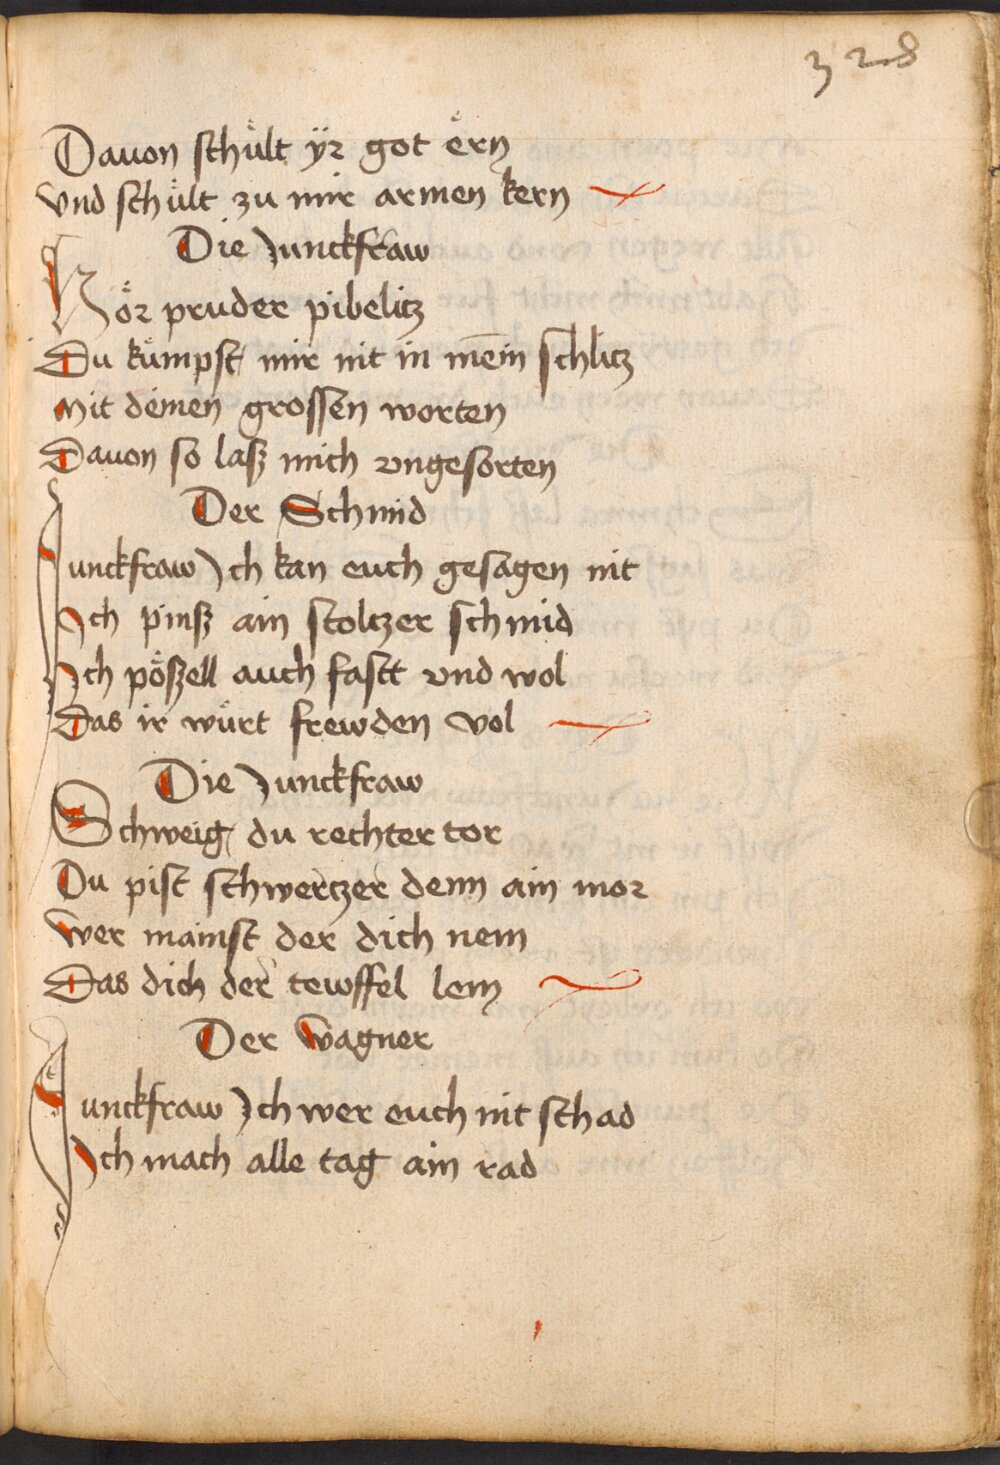 328
Dauon schuͤlt yr got eͤrn
vnd schuͤlt zu mir armen kern
Die Junckfraw
Hoͤr pruder pibelitz
Du kuͤmpst mir nit in mein schlitz
Mit deinen grossen worten
Dauon so lasz mich vngesorten
Der Schmid
Junckfraw Ich kan euch gesagen nit
Ich pinsz ain stoltzer schmid
Ich poͤszell auch fastt vnd wol
Das ir wuͤrt frewden vol
Die Junckfraw
Schweig du rechter tor
Du pist schwertzer denn ain mor
wer mainst der dich nem
Das dich der tewffel lem
Der wagner
Junckfraw Ich wer euch nit schad
Ich mach alle tag ain rad